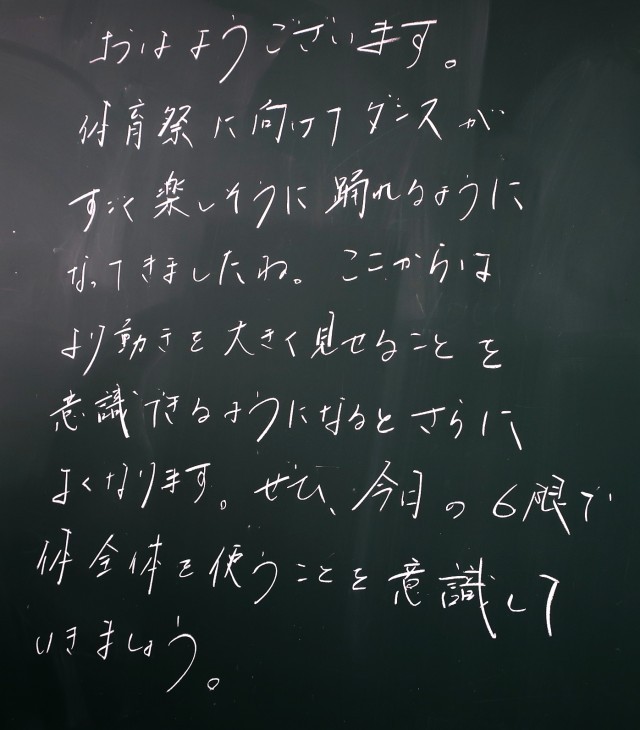 おはようございます。
体育祭に向けてダンスが
すごく楽しそうに踊れるように
なってきましたね。ここからは
より動きを大きく見せることを
意識できるようになるとさらに
よくなります。ぜひ、今日の6限で
体全体を使うことを意識して
いきましょう。